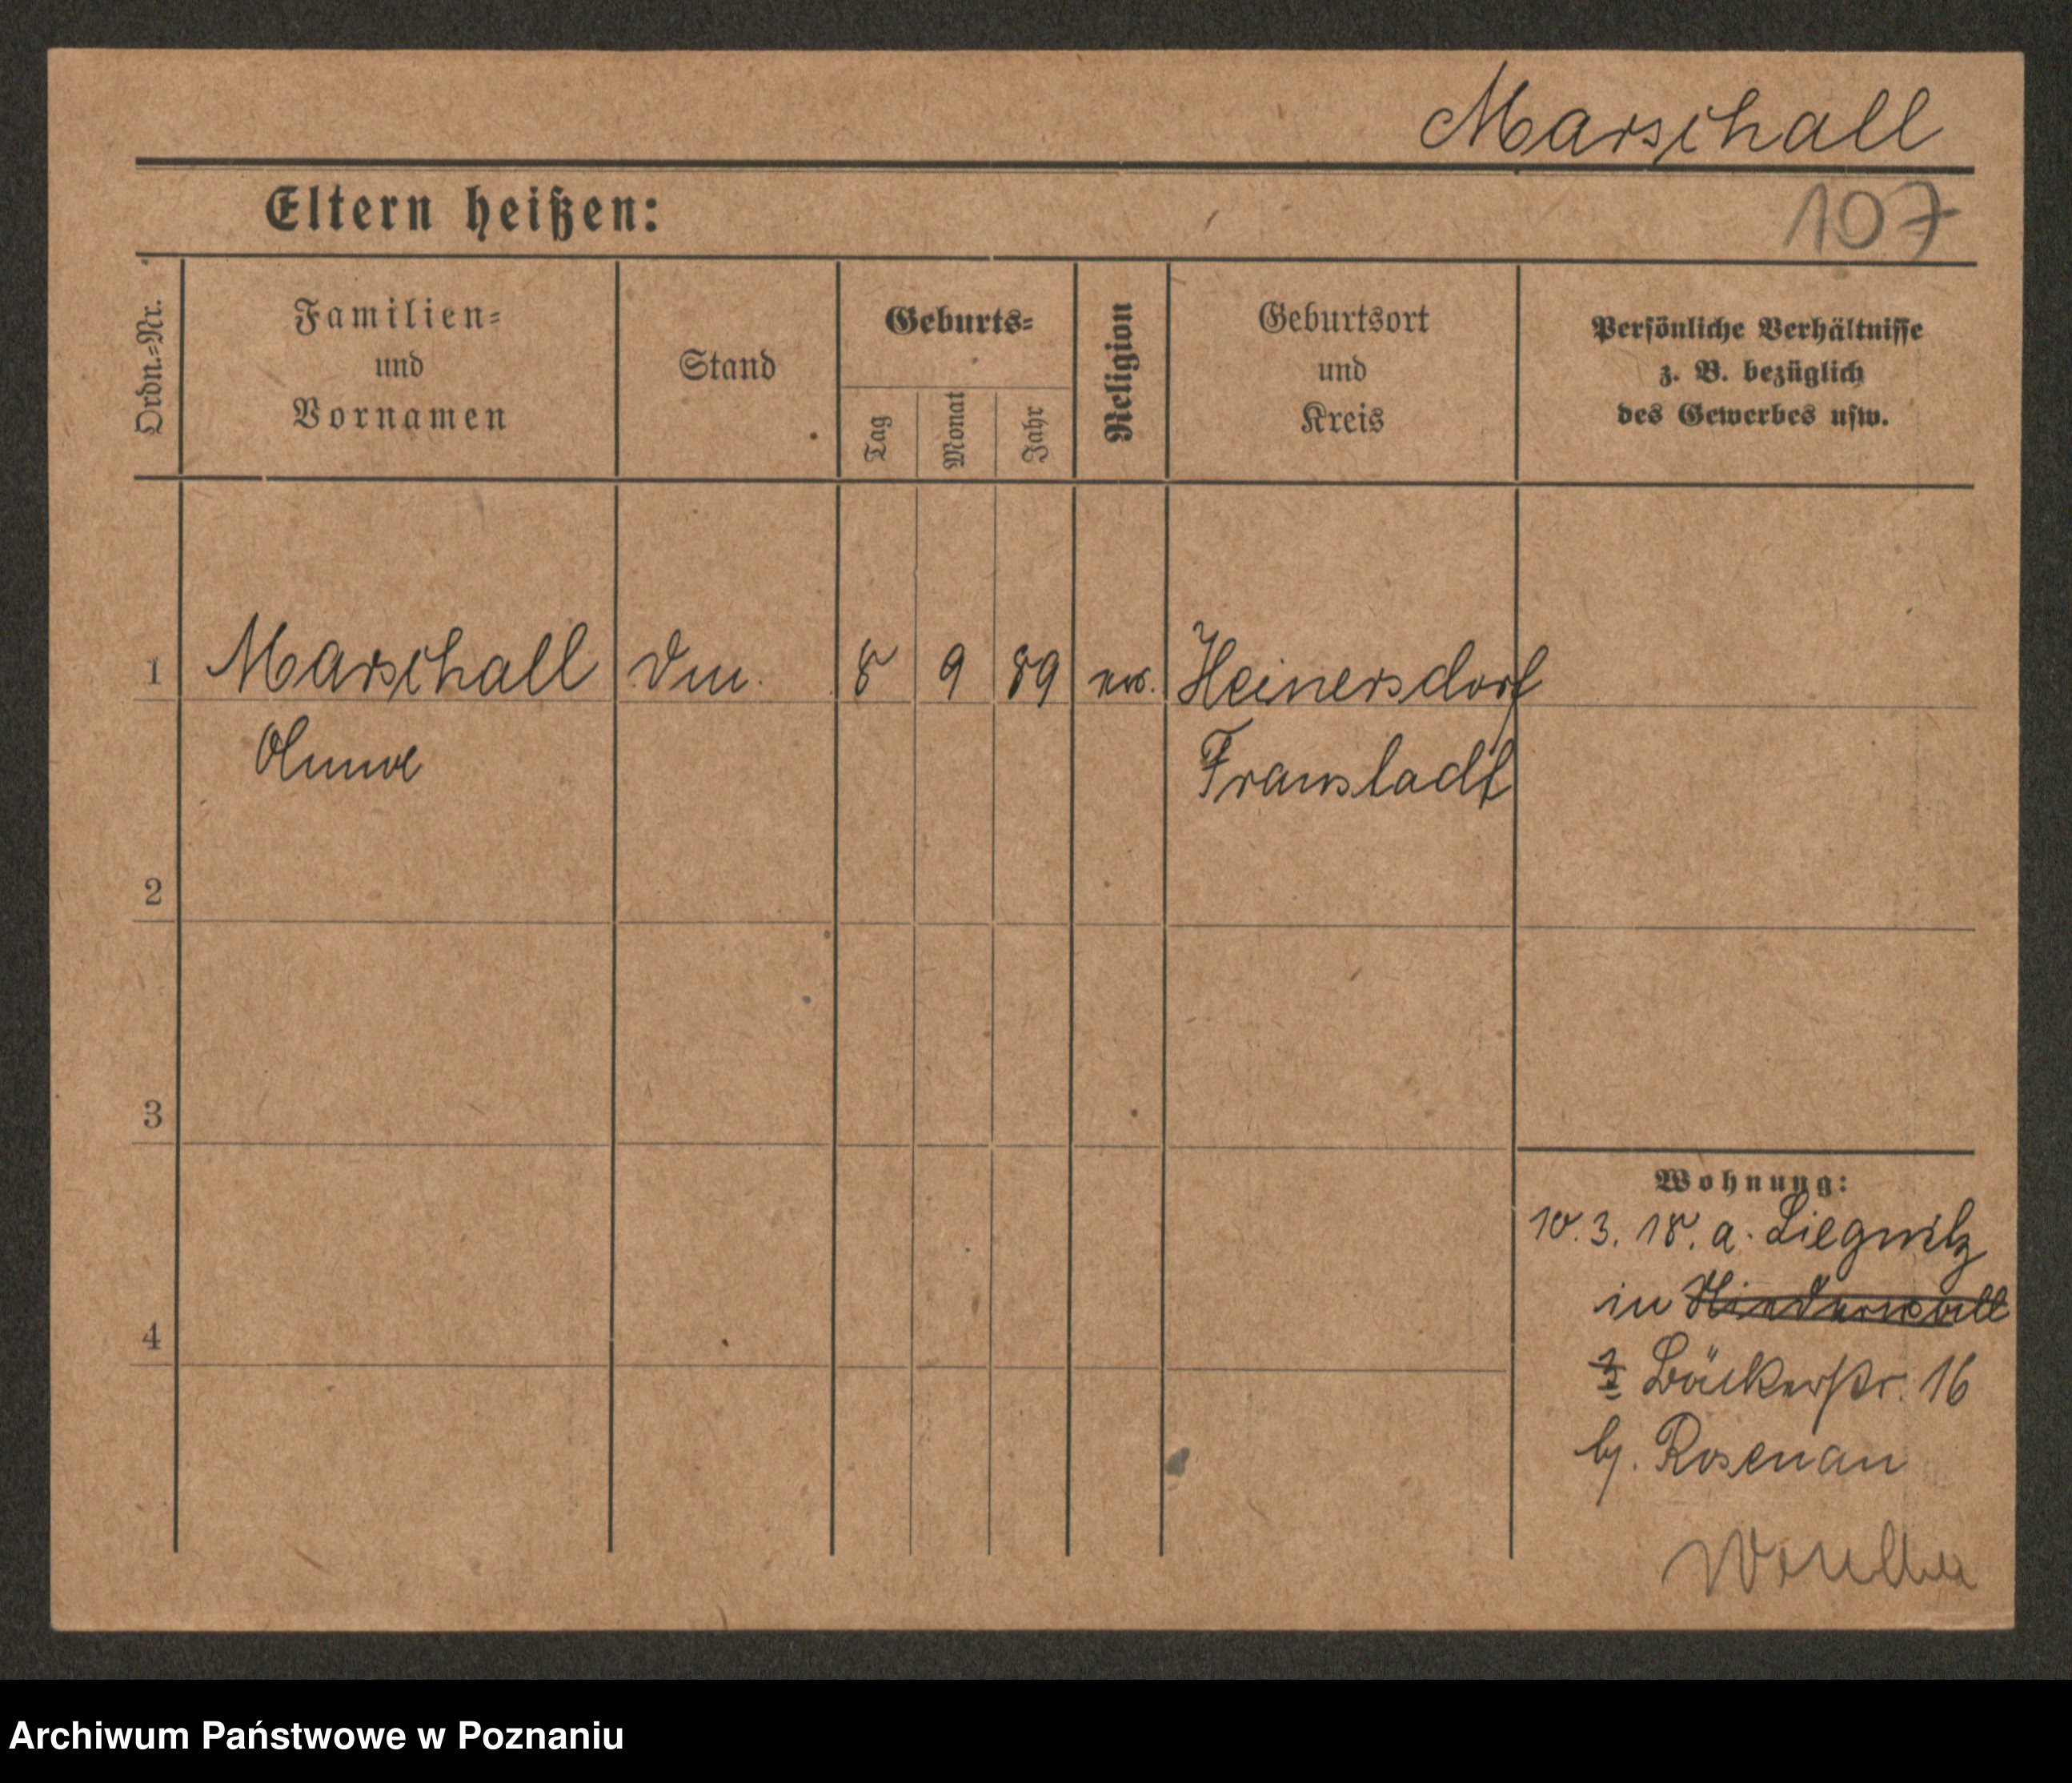 Marschall
107
Eltern heißen:
Ordn.-Nr.
Familien-
und
Vornamen
Stand
Geburts-
Tag
Monat
Jahr
Religion
Geburtsort
und
Kreis
Persönliche Verhältnisse
z. B. bezüglich
des Gewerbes usw.
1 Marschall 8 9 89 Heinersdorf
Fraustadt
2
3
4
Wohnung:
10. 3. 18. a. Liegnitz
in
Bäckerstr. 16
b/. Rosenau
Archiwum Państwowe w Poznaniu